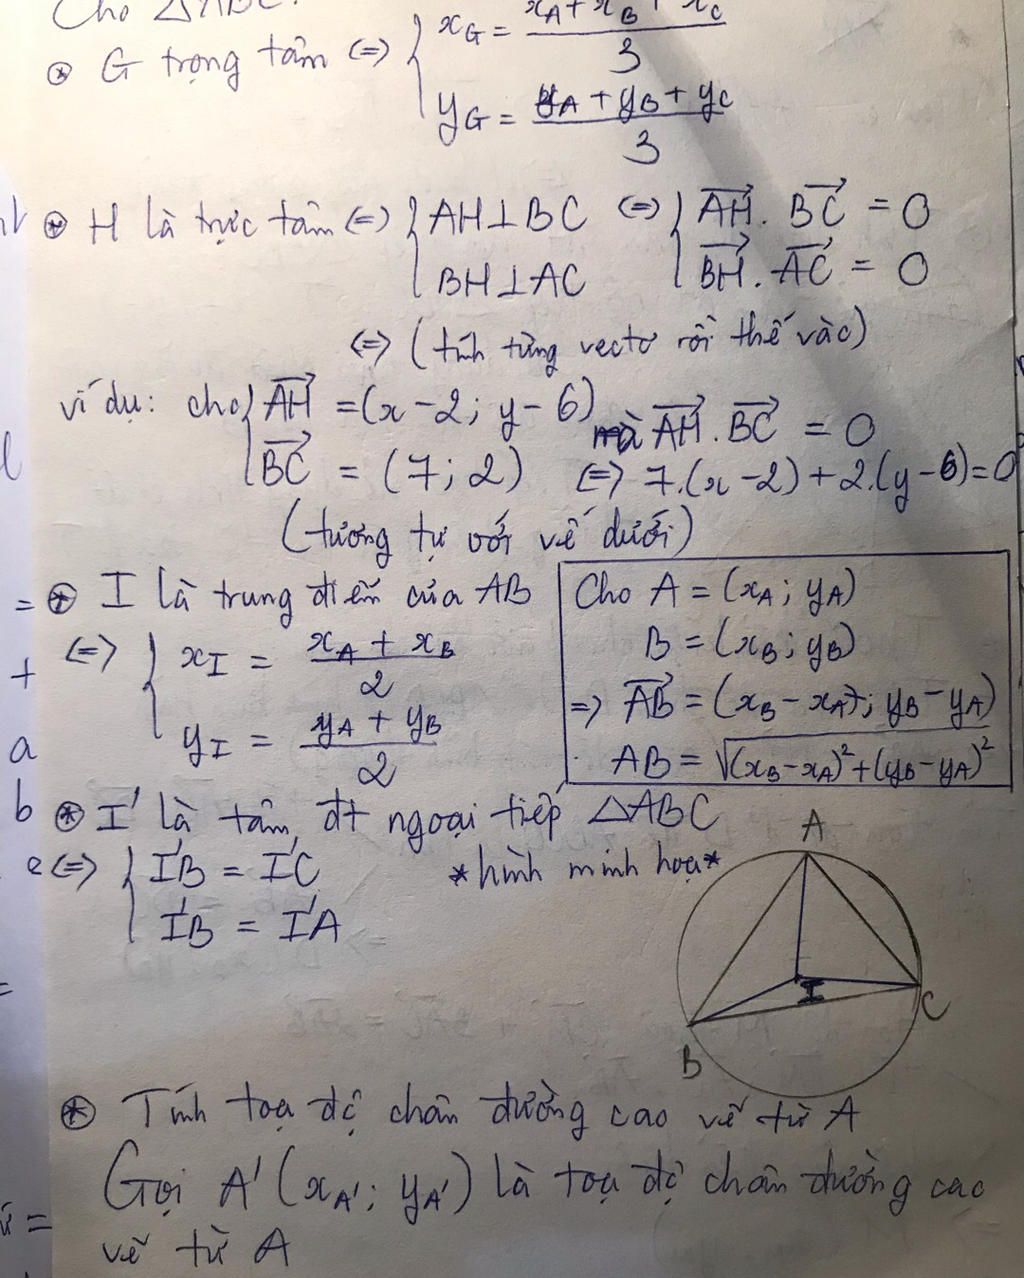 Cho △ABC:
⊛ G trọng tâm <=> { x_G = (x_A + x_B + x_C)/3
y_G = (y_A + y_B + y_C)/3
⊛ H là trực tâm <=> { AH⊥BC <=> { \overrightarrow{AH}. \overrightarrow{BC} = 0
BH⊥AC \overrightarrow{BH}. \overrightarrow{AC} = 0
<=> (tính từng vectơ rồi thế vào)
ví dụ: cho { \overrightarrow{AH} = (x-2; y-6) mà \overrightarrow{AH}. \overrightarrow{BC} = 0
\overrightarrow{BC} = (7; 2) <=> 7.(x-2)+2.(y-6)=0
(tương tự với vế dưới)
= ⊛ I là trung điểm của AB
<=> { x_I = (x_A + x_B)/2
+
y_I = (y_A + y_B)/2
a
Cho A = (x_A; y_A)
B = (x_B; y_B)
=> \overrightarrow{AB} = (x_B - x_A; y_B - y_A)
AB = √((x_B-x_A)²+(y_B-y_A)²)
b ⊛ I' là tâm đt ngoại tiếp △ABC
e <=> { I'B = I'C *hình minh hoạ*
I'B = I'A
A
I
C
B
⊛ Tính toạ độ chân đường cao vẽ từ A
Gọi A' (x_A'; y_A') là toạ độ chân đường cao
vẽ từ A